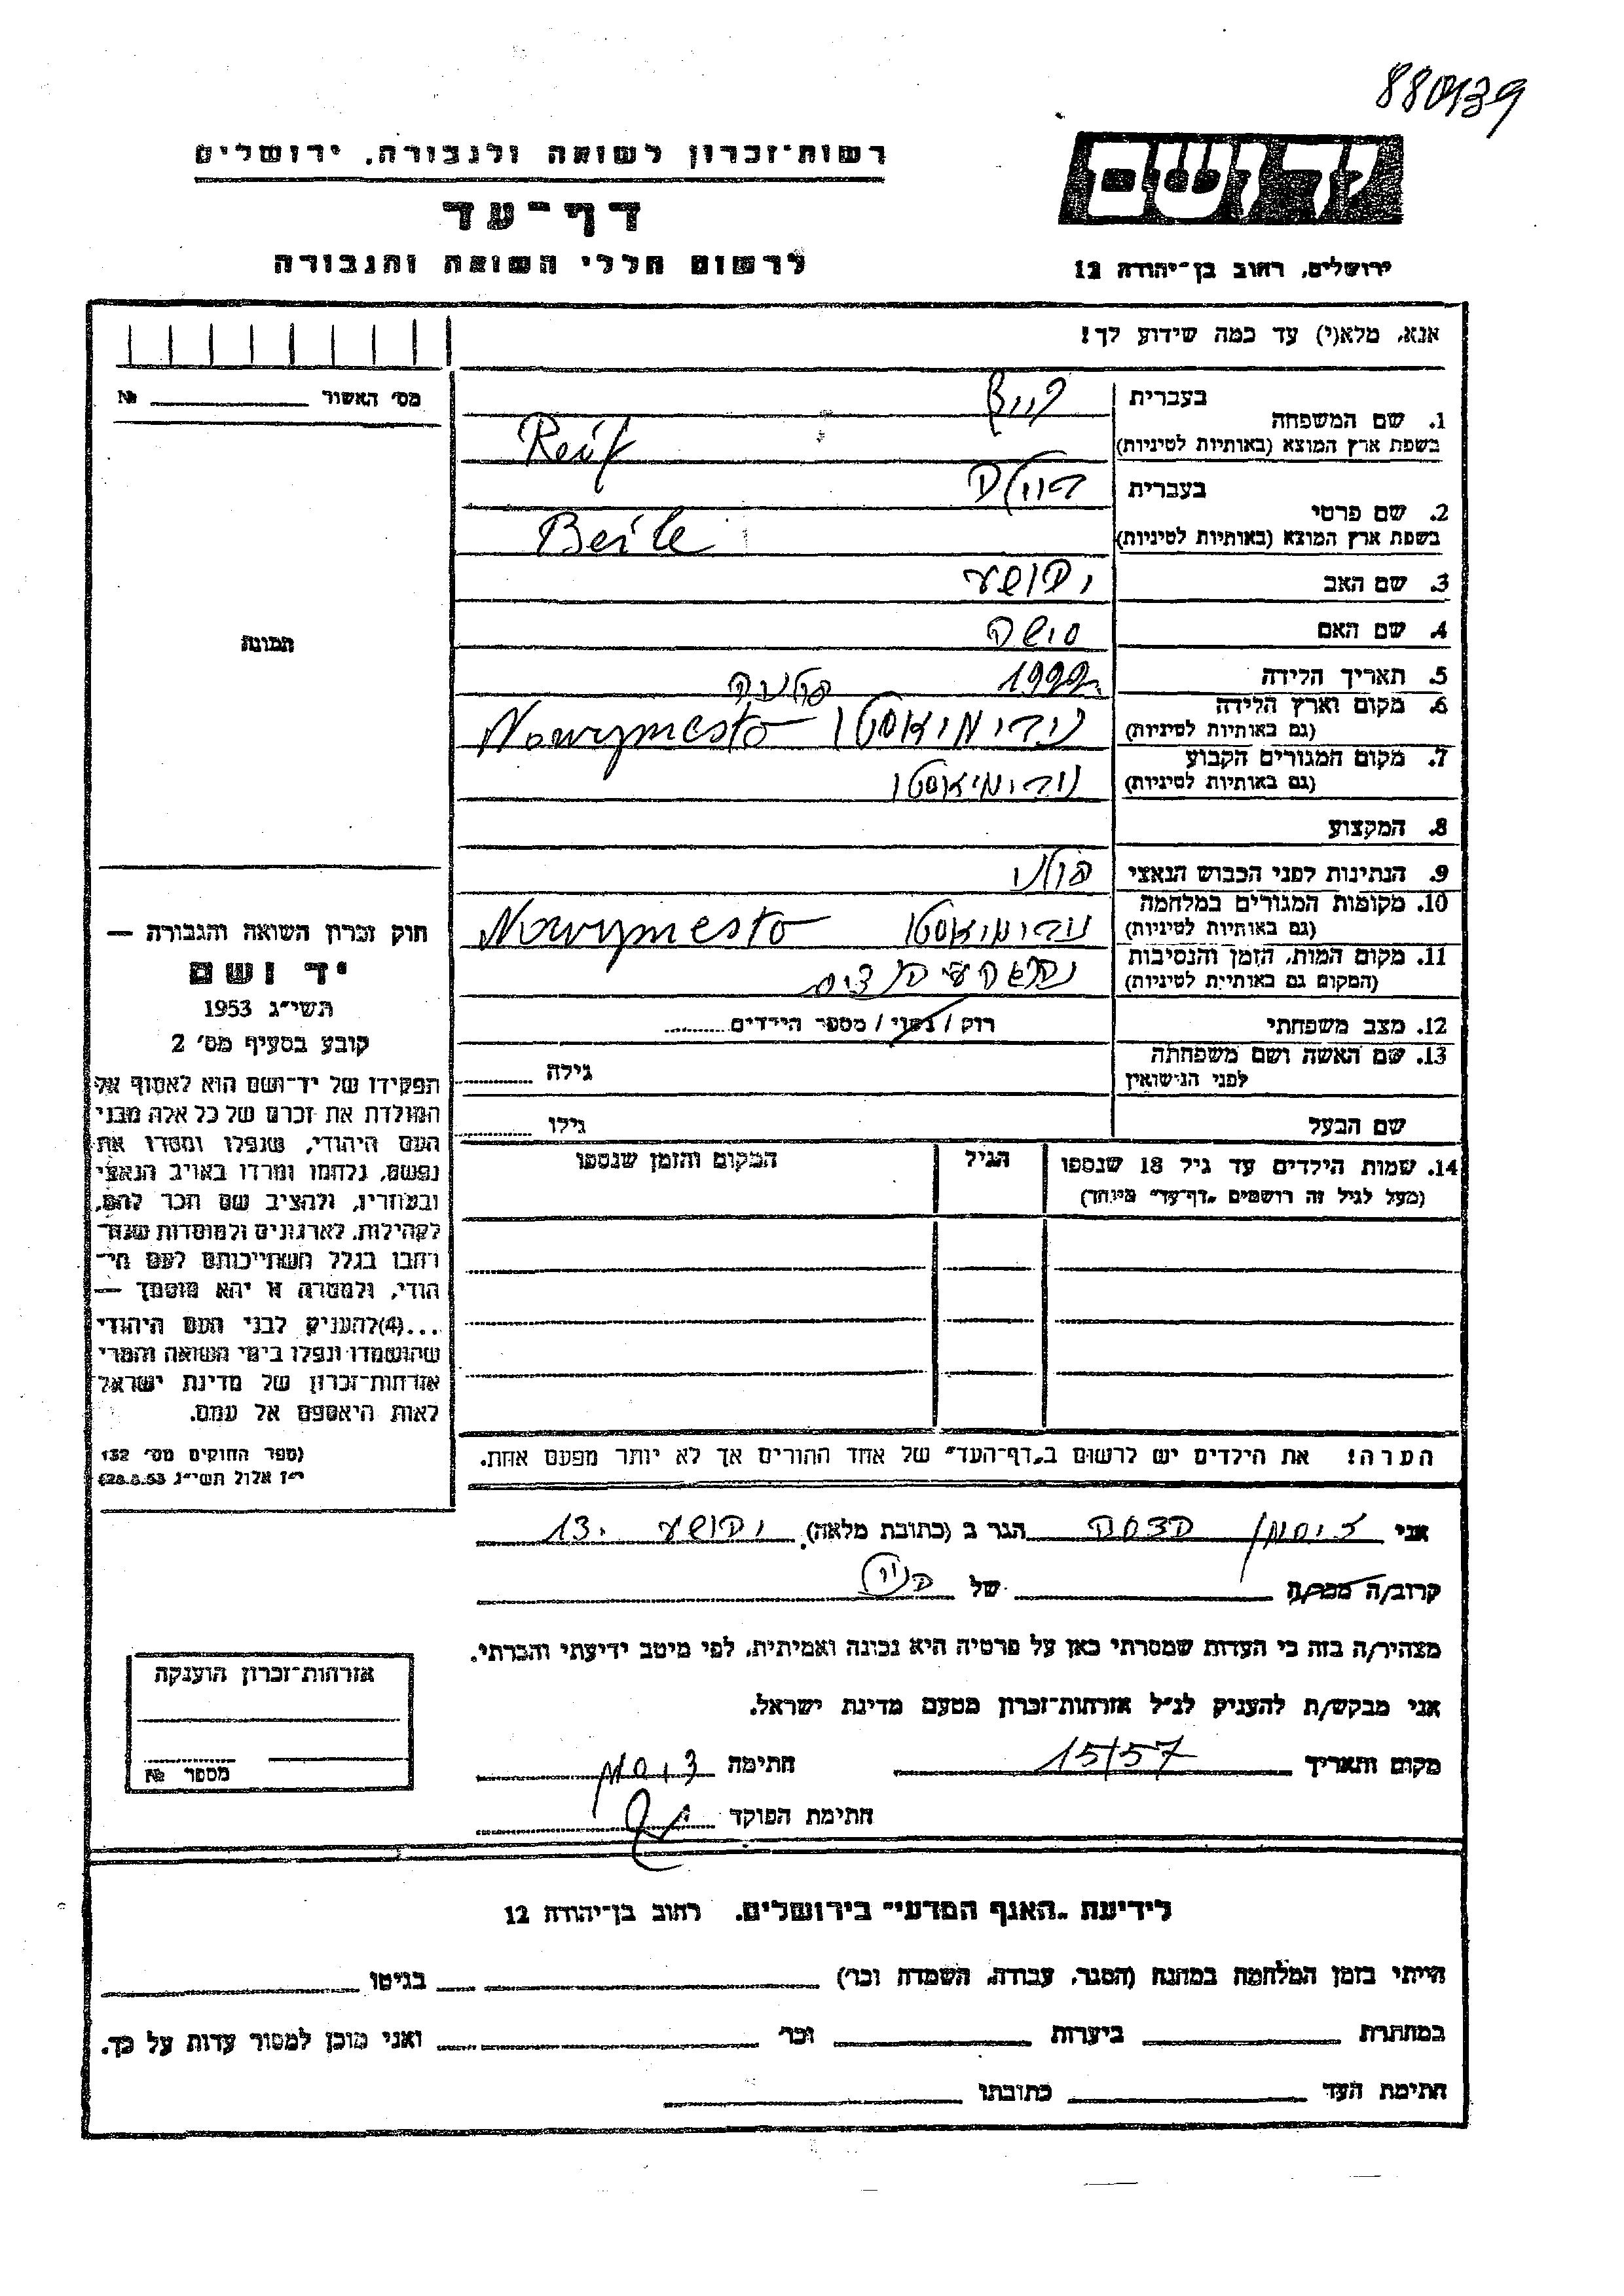 880139
רשות־זכרון לשואה ולגבורה, ירושלים
יד ושם
דף־עד
לרשום חללי השואה והגבורה
ירושלים, רחוב בן־יהודה 12
אנא, מלא(י) עד כמה שידוע לך!
מס׳ האשור № 
1. שם המשפחה
בעברית
בשפת ארץ המוצא (באותיות לטיניות)
2. שם פרטי
בעברית ביילה
בשפת ארץ המוצא (באותיות לטיניות) Beile
3. שם האב יהושע
4. שם האם
5. תאריך הלידה
6. מקום וארץ הלידה
(גם באותיות לטיניות) Nowymesto
7. מקום המגורים הקבוע
(גם באותיות לטיניות)
8. המקצוע
9. הנתינות לפני הכבוש הנאצי פולני
10. מקומות המגורים במלחמה
(גם באותיות לטיניות) Nowymesto
11. מקום המות, הזמן והנסיבות
(המקום גם באותיות לטיניות)
12. מצב משפחתי רוק / נשוי / מספר הילדים
13. שם האשה ושם משפחתה
לפני הנישואין
גילה
שם הבעל גילו
14. שמות הילדים עד גיל 18 שנספו
(מעל לגיל זה רושמים „דף־עד״ מיוחד)
הגיל
המקום והזמן שנספו
הערה! את הילדים יש לרשום ב„דף־העד״ של אחד ההורים אך לא יותר מפעם אחת.
תמונה
חוק זכרון השואה והגבורה —
יד ושם
תשי״ג 1953
קובע בסעיף מס׳ 2
תפקידו של יד־ושם הוא לאסוף אל
המולדת את זכרם של כל אלה מבני
העם היהודי, שנפלו ומסרו את
נפשם, נלחמו ומרדו באויב הנאצי
ובעוזריו, ולהציב שם וזכר להם,
לקהילות, לארגונים ולמוסדות שנח־
רבו בגלל השתייכותם לעם הי־
הודי, ולמטרה זו יהא מוסמך —
...(4) להעניק לבני העם היהודי
שהושמדו ונפלו בימי השואה והמרי
אזרחות־זכרון של מדינת ישראל
לאות היאספם אל עמם.
(ספר החוקים מס׳ 132
י״ז אלול תשי״ג 28.8.53)
אני הגר ב (כתובת מלאה)
קרוב/ה מכר/ה של
מצהיר/ה בזה כי העדות שמסרתי כאן על פרטיה היא נכונה ואמיתית, לפי מיטב ידיעתי והכרתי.
אני מבקש/ת להעניק לנ״ל אזרחות־זכרון מטעם מדינת ישראל.
מקום ותאריך 15/57 חתימה
חתימת הפוקד
אזרחות־זכרון הוענקה
מספר №
לידיעת „האגף המדעי״ בירושלים, רחוב בן־יהודה 12
הייתי בזמן המלחמה במחנה (הסגר, עבודה, השמדה וכו׳) בגיטו
במחתרת ביערות וכו׳ ואני מוכן למסור עדות על כך.
חתימת העד כתובתו